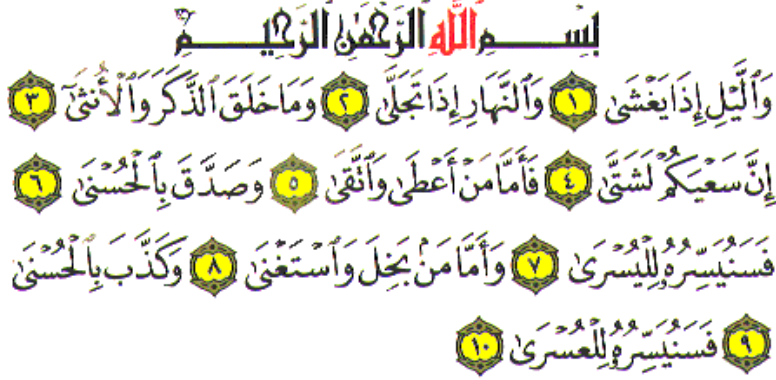 بِسْمِ ٱللَّهِ ٱلرَّحْمَٰنِ ٱلرَّحِيمِ
وَٱلَّيْلِ إِذَا يَغْشَىٰ ١ وَٱلنَّهَارِ إِذَا تَجَلَّىٰ ٢ وَمَا خَلَقَ ٱلذَّكَرَ وَٱلْأُنثَىٰٓ ٣
إِنَّ سَعْيَكُمْ لَشَتَّىٰ ٤ فَأَمَّا مَنْ أَعْطَىٰ وَٱتَّقَىٰ ٥ وَصَدَّقَ بِٱلْحُسْنَىٰ ٦
فَسَنُيَسِّرُهُۥ لِلْيُسْرَىٰ ٧ وَأَمَّا مَنۢ بَخِلَ وَٱسْتَغْنَىٰ ٨ وَكَذَّبَ بِٱلْحُسْنَىٰ
٩ فَسَنُيَسِّرُهُۥ لِلْعُسْرَىٰ ١٠